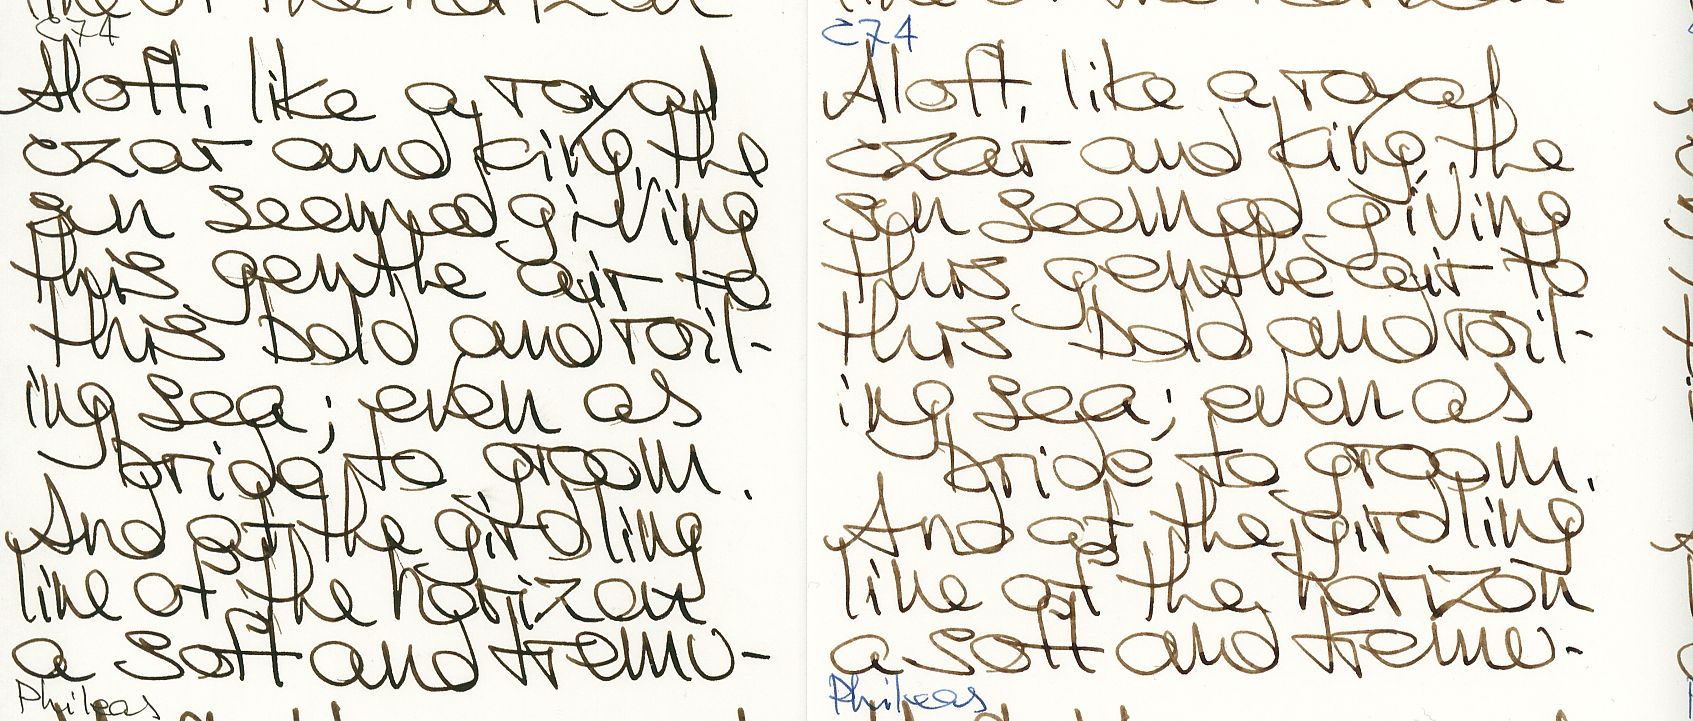 line of the horizon
C74
Aloft, like a royal
czar and king, the
sun seemed giving
this gentle air to
this bold and roil-
ing sea; even as
bride to groom.
And at the girdling
line of the horizon
a soft and tremu-
Phileas
line of the horizon
C74
Aloft, like a royal
czar and king, the
sun seemed giving
this gentle air to
this bold and roil-
ing sea; even as
bride to groom.
And at the girdling
line of the horizon
a soft and tremu-
Phileas